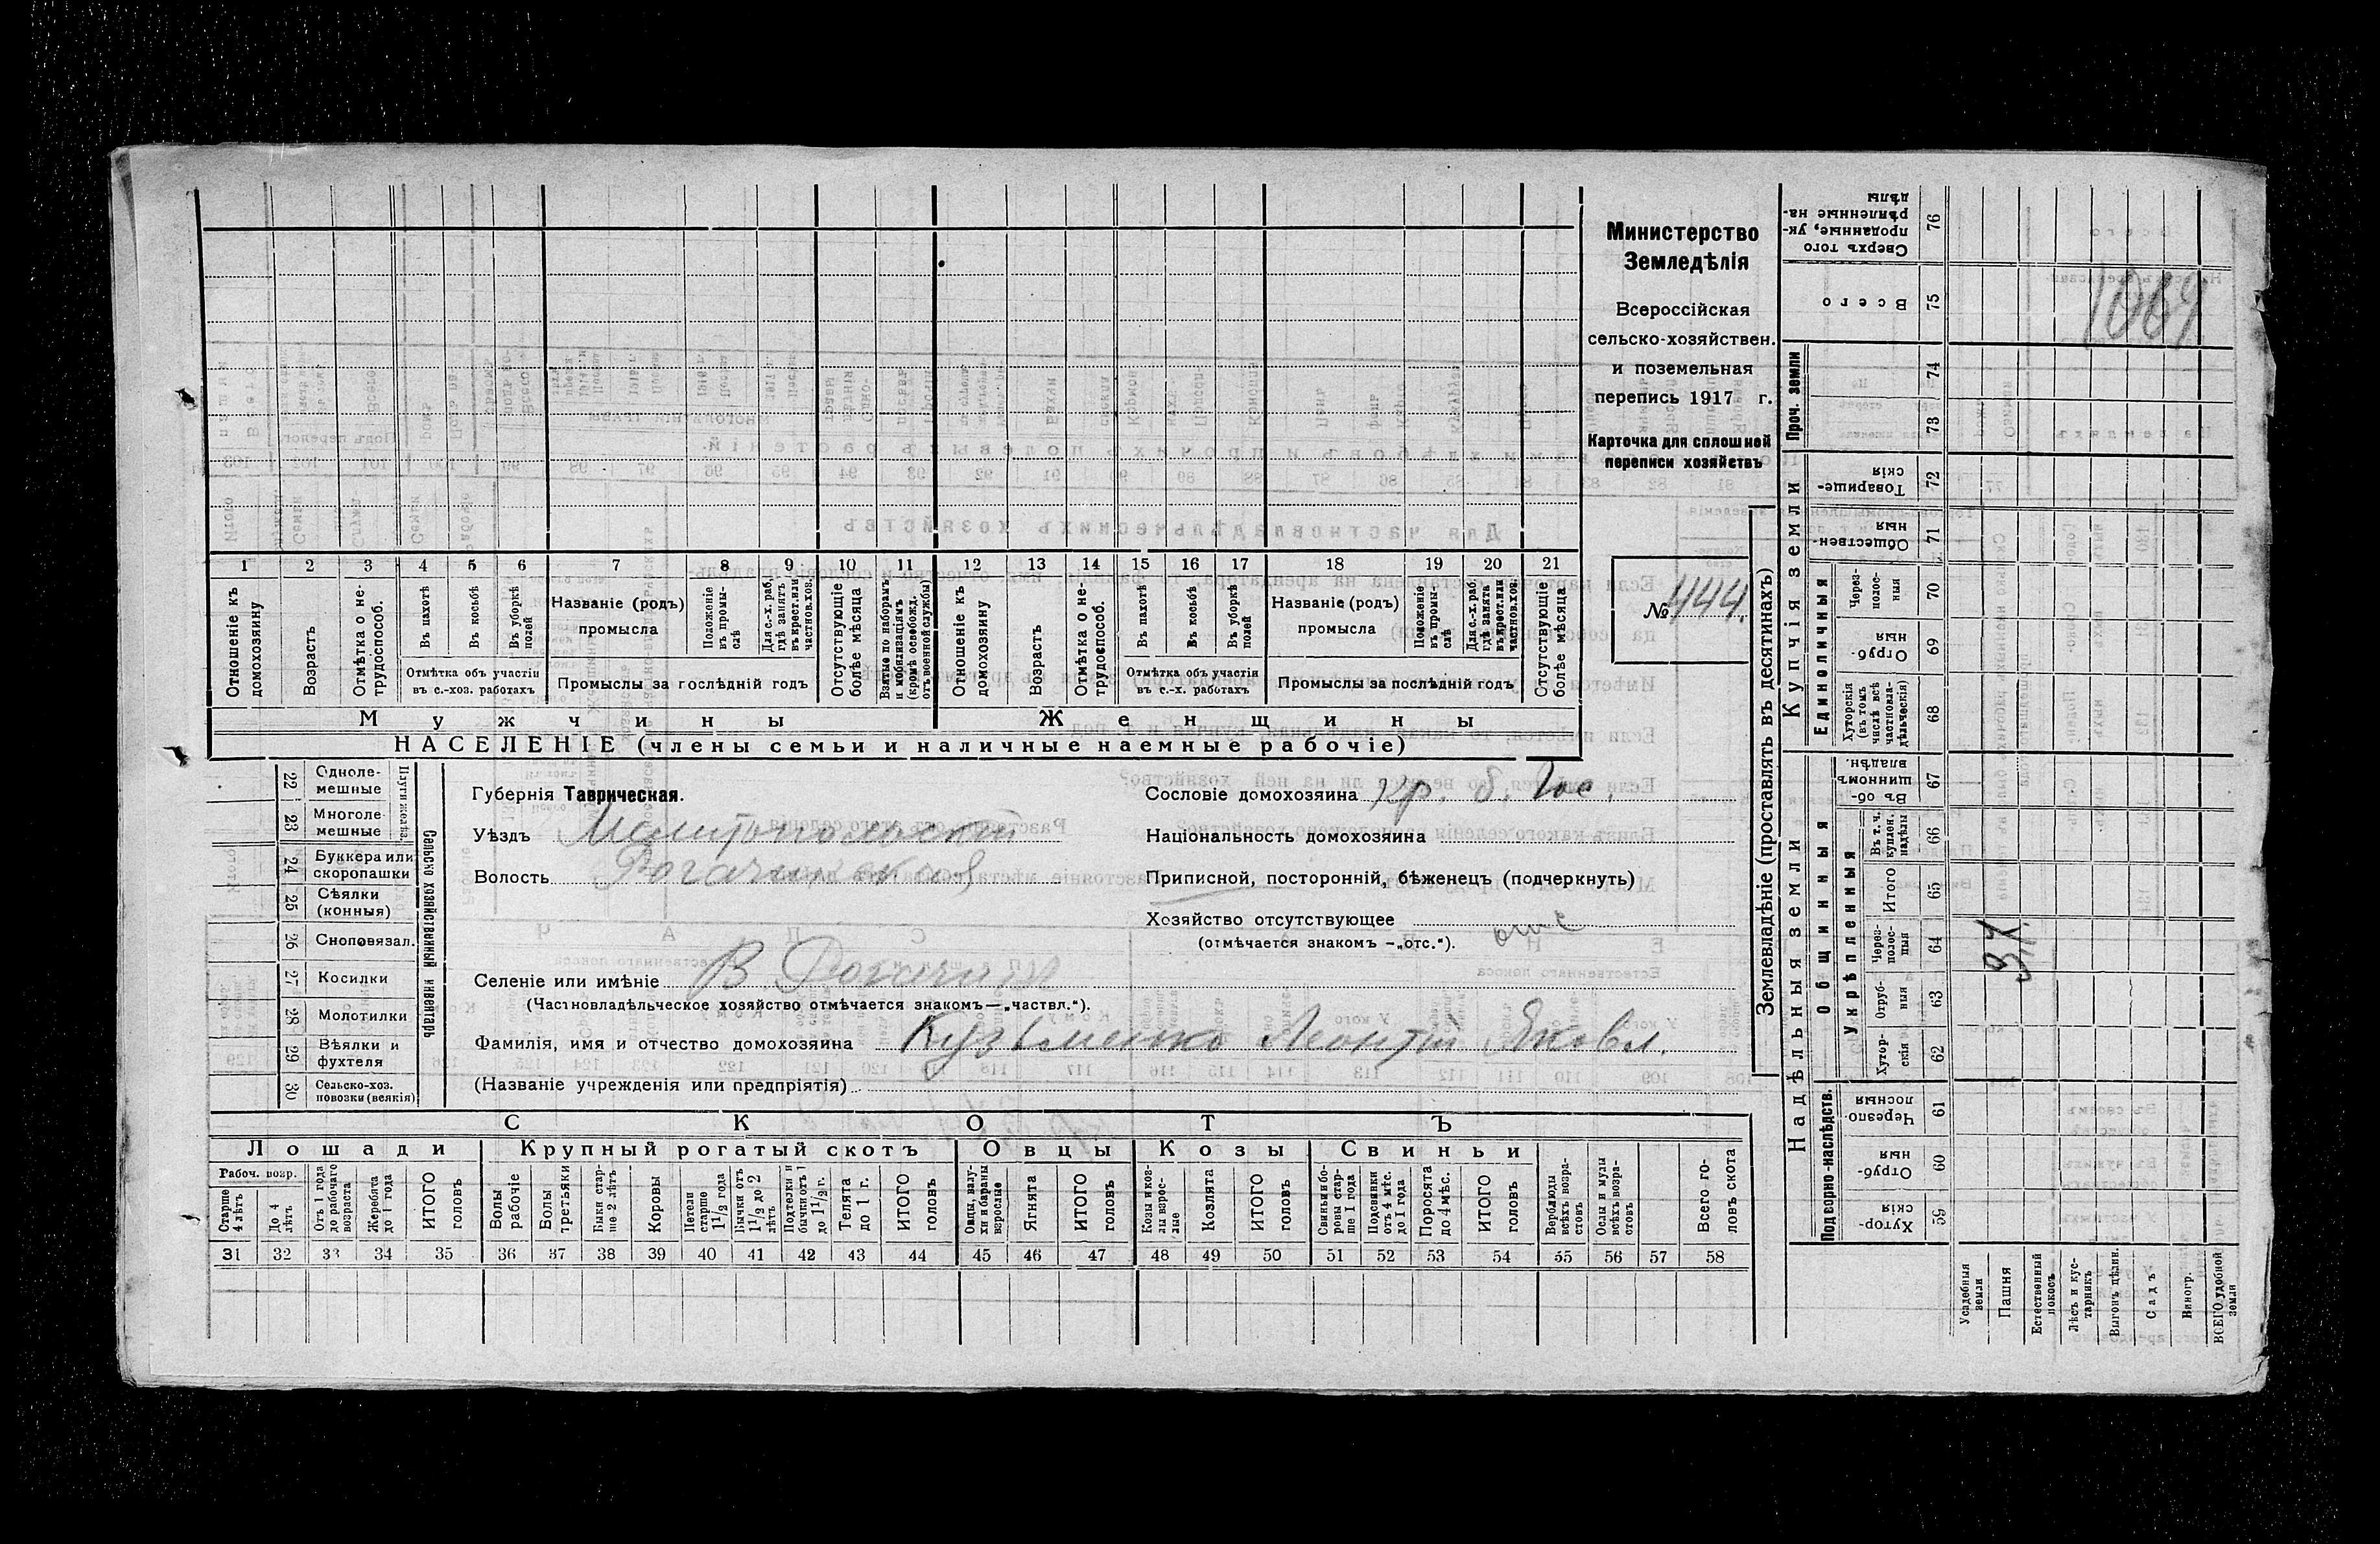 Министерство
Земледѣлія
Всероссійская
сельско-хозяйствен.
и поземельная
перепись 1917 г.
Карточка для сплошней
переписи хозяйствъ
№ 444.
1 2 3 4 5 6 7 8 9 10 11 12 13 14 15 16 17 18 19 20 21
Отношеніе къ домохозяину
Возрастъ
Отмѣтка о не-трудоспособ.
Въ пахотѣ
Въ косьбѣ
Въ уборкѣ полей
Отмѣтка объ участіи въ с.-хоз. работахъ
Названіе (родъ) промысла
Положеніе въ промы-слѣ
Для с.-х. раб. гдѣ занятъ въ крест. или частнов. хоз.
Промыслы за послѣдній годъ
Отсутствующіе болѣе мѣсяца
Взятые по наборамъ и мобилизаціямъ (кромѣ освобожд. отъ военной службы)
Отношеніе къ домохозяину
Возрастъ
Отмѣтка о не-трудоспособ.
Въ пахотѣ
Въ косьбѣ
Въ уборкѣ полей
Отмѣтка объ участіи въ с.-х. работахъ
Названіе (родъ) промысла
Положеніе въ промы-слѣ
Для с.-х. раб. гдѣ занята въ крест. или частнов. хоз.
Промыслы за послѣдній годъ
Отсутствующіе болѣе мѣсяца
Мужчины
Женщины
НАСЕЛЕНІЕ (члены семьи и наличные наемные рабочіе)
22 Одноле-мешные
23 Многоле-мешные
Плуги желѣз.
24 Буккера или скоропашки
25 Сѣялки (конныя)
26 Сноповязал.
27 Косилки
28 Молотилки
29 Вѣялки и фухтеля
30 Сельско-хоз. повозки (всякія)
Сельско хозяйственный инвентарь
Губернія Таврическая.
Уѣздъ Мелитопольскій
Волость Рогачикская
Селеніе или имѣніе В. Рогачик
(Частновладѣльческое хозяйство отмѣчается знакомъ—„частвл.“).
Фамилія, имя и отчество домохозяина Кузьменко Леонтій Яковл.
(Названіе учрежденія или предпріятія)
Сословіе домохозяина кр. б. Гос.
Національность домохозяина
Приписной, посторонній, бѣженецъ (подчеркнуть)
Хозяйство отсутствующее отс
(отмѣчается знакомъ —„отс.“).
СКОТЪ
Лошади
Крупный рогатый скотъ
Овцы
Козы
Свиньи
Рабоч. возр.
Старше 4 лѣтъ
До 4 лѣтъ
Отъ 1 года до рабочаго возраста
Жеребята до 1 года
ИТОГО головъ
Волы рабочіе
Волы третьяки
Быки стар-ше 2 лѣтъ
Коровы
Нетели старше 1 1/2 года
Бычки отъ 1 1/2 до 2 лѣтъ
Подтелки и бычки отъ 1 до 1 1/2 г.
Телята до 1 г.
ИТОГО головъ
Овцы, валу-хи и бараны взрослые
Ягнята
ИТОГО головъ
Козы и коз-лы взрос-лые
Козлята
ИТОГО головъ
Свиньи и бо-ровы стар-ше 1 года
Подсвинки отъ 4 мѣс. до 1 года
Поросята до 4 мѣс.
ИТОГО головъ
Верблюды всѣхъ возра-стовъ
Ослы и мулы всѣхъ возра-стовъ
Всего го-ловъ скота
31 32 33 34 35 36 37 38 39 40 41 42 43 44 45 46 47 48 49 50 51 52 53 54 55 56 57 58
Землевладѣніе (проставлять въ десятинахъ)
Надѣльныя земли
Купчія земли
Проч. земли
Подворно-наслѣдств.
Общинныя
Укрѣпленныя
Единоличныя
59 Хутор-скія
60 Отруб-ныя
61 Черезпо-лосныя
62 Хутор-скія
63 Отруб-ныя
64 Через-полос-ныя
65 Итого
66 Въ т. ч. куплен. надѣлы
67 Въ об-щинномъ владѣн.
68 Хуторскія (въ томъ числѣ всѣ частновла-дѣльческія)
69 Отруб-ныя
70 Через-полос-ныя
71 Обществен-ныя
72 Товарище-скія
73
74
75 Всего
76 Сверхъ того проданные, ук-рѣпленные на-дѣлы
Усадебныя земли
Пашня
Естественный покосъ
Лѣсъ и кус-тарникъ
Выгонъ цѣлин.
Садъ
Виногр.
ВСЕГО удобной земли
1069